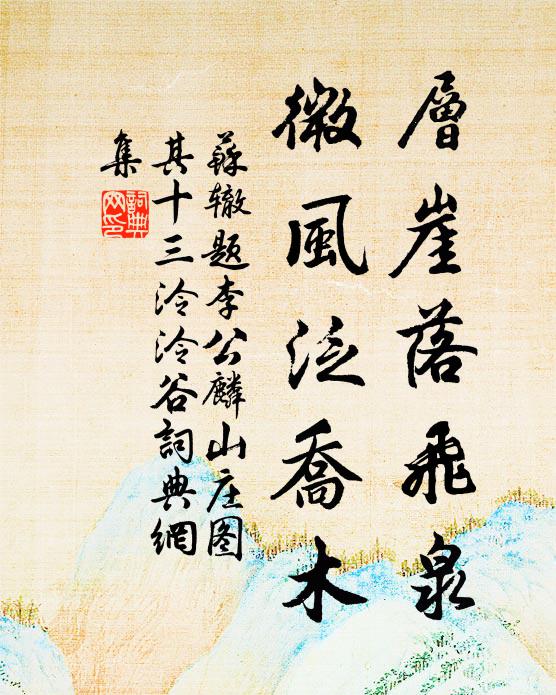 層崖落飛泉
微風泛喬木
蘇辙題李公麟山庄图
其十三泠泠谷詞典網
集
詞典
网印